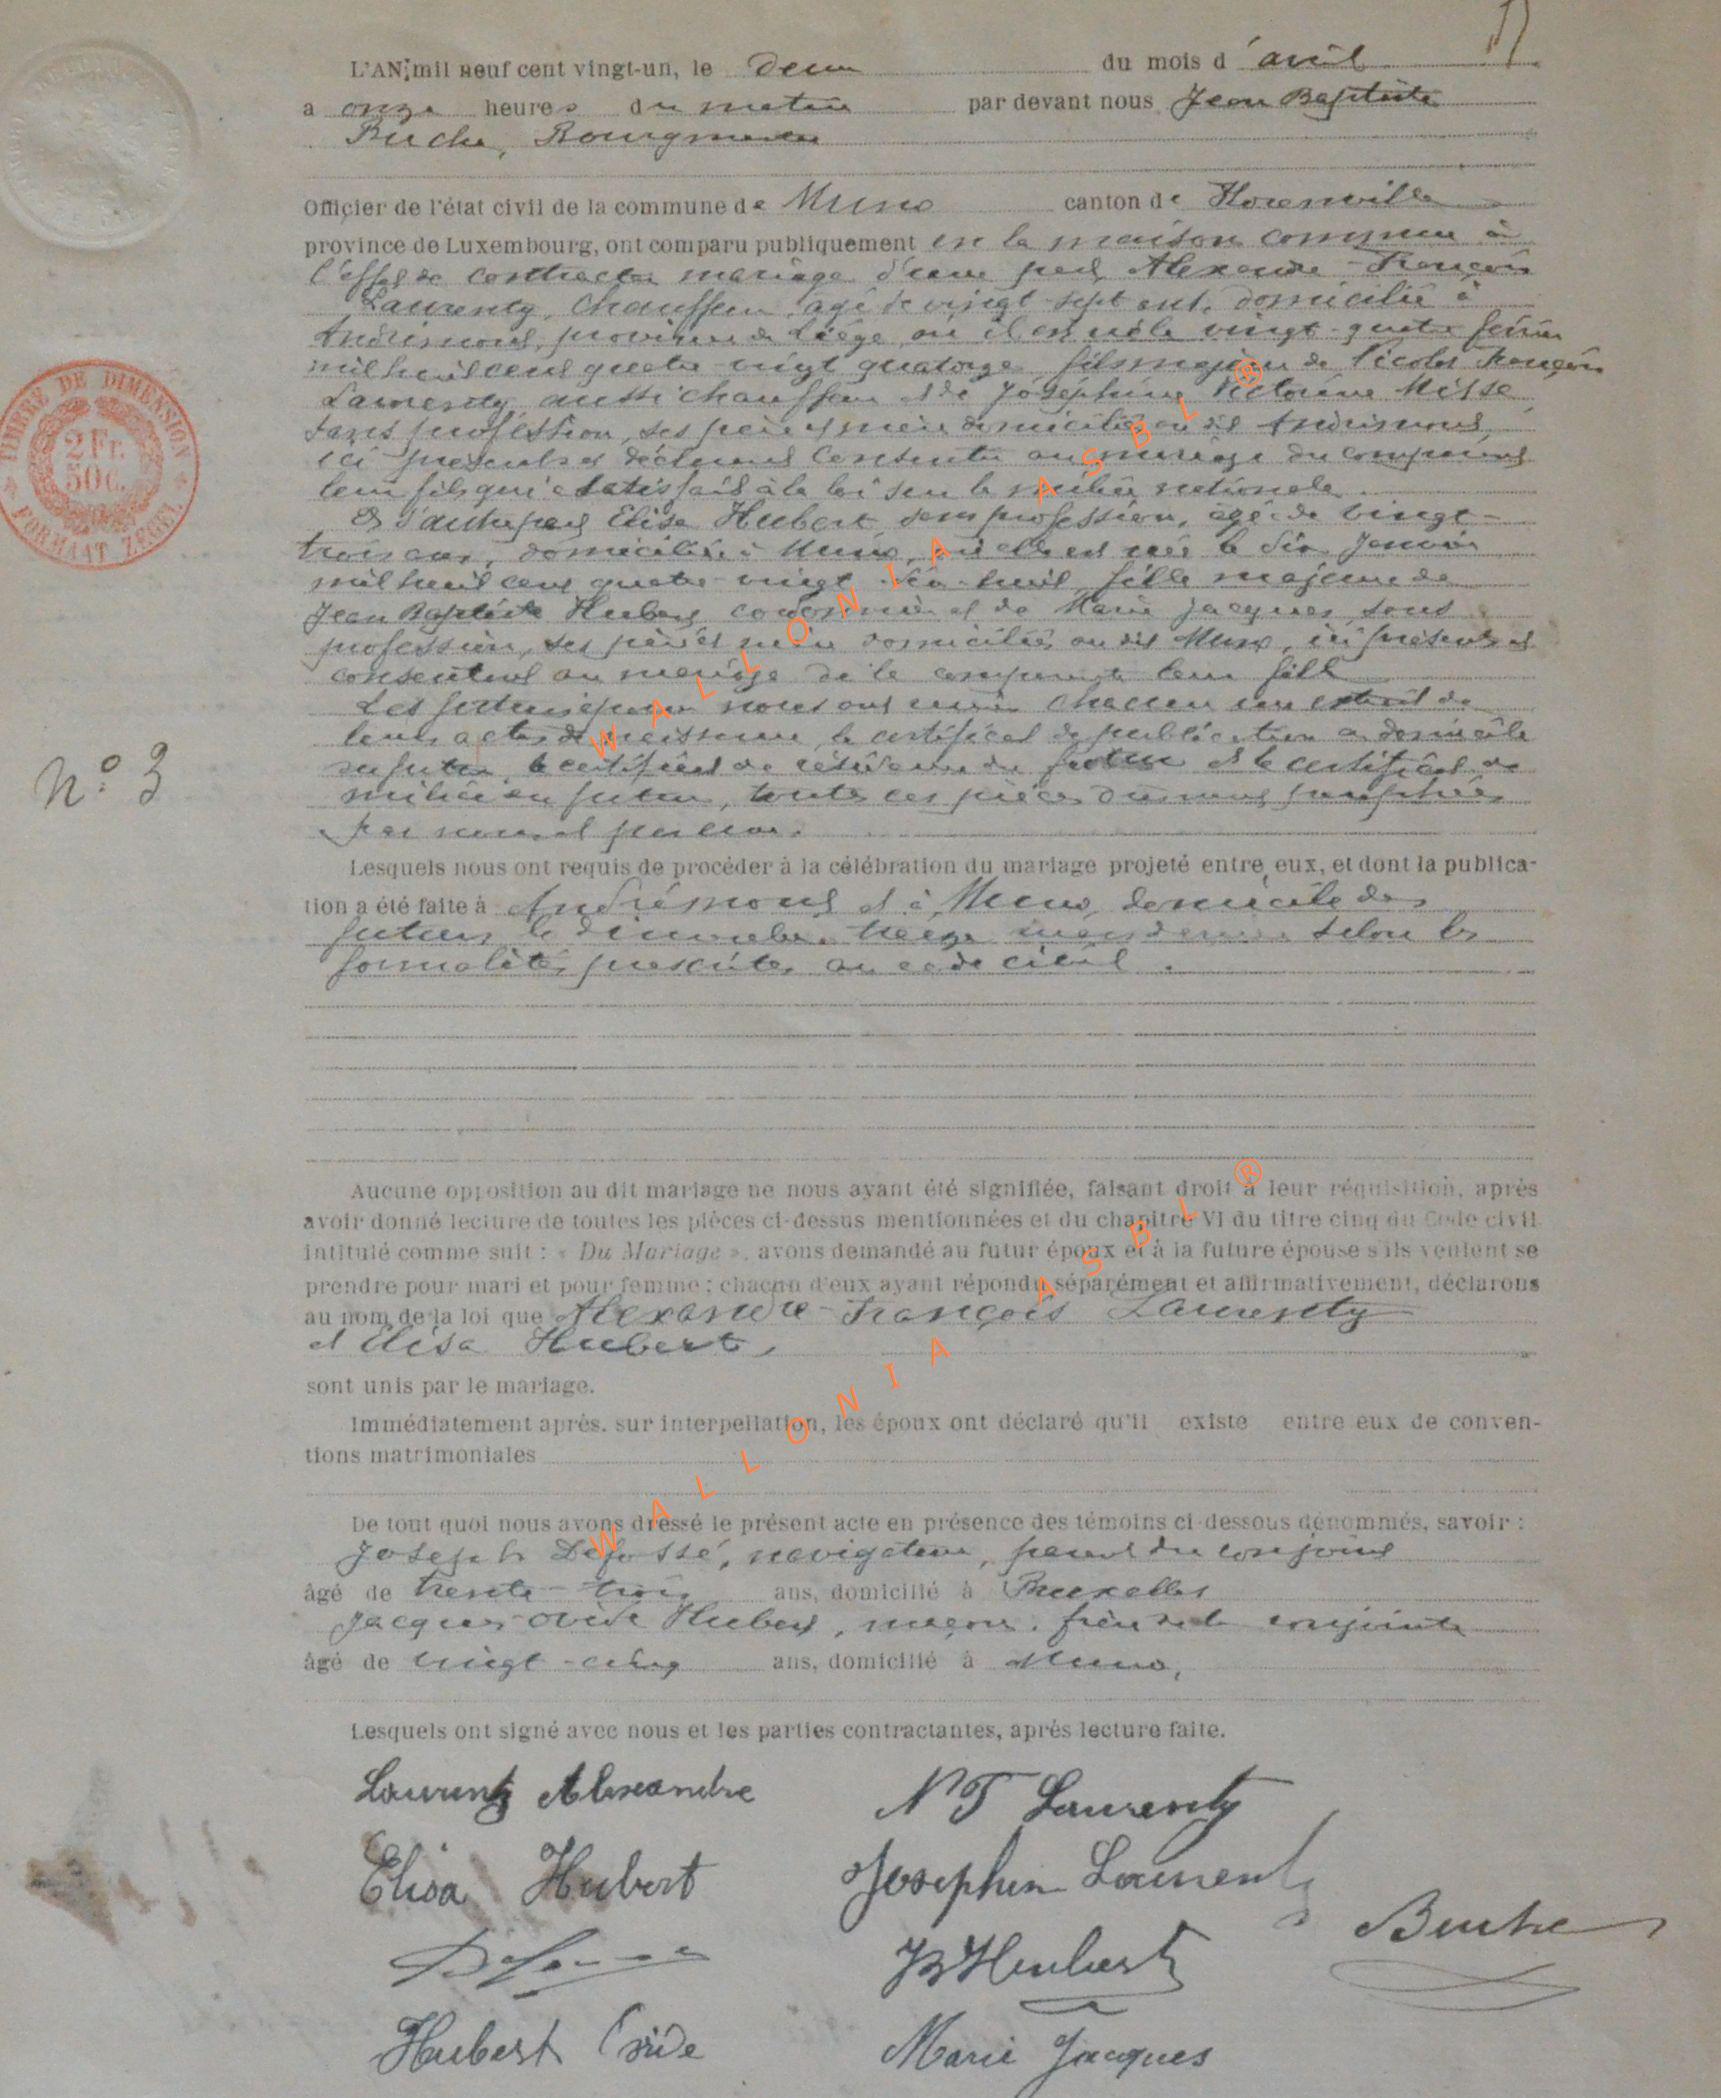 L'AN mil neuf cent vingt-un, le deux du mois d'avril
a onze heures du matin par devant nous Jean Baptiste
Buche, Bourgmestre
Officier de l'état civil de la commune de Muno canton de Florenville
province de Luxembourg, ont comparu publiquement en la maison commune à
l'effet de contracter mariage d'une part Alexandre-François
Laurenty, chauffeur, agé de vingt-sept ans, domicilié à
Andrimont, province de Liége, où il est né le vingt-quatre février
mil huit cent quatre-vingt quatorze, fils majeur de Nicolas François
Laurenty aussi chauffeur et de Joséphine Victorine Misse,
sans profession, ses père et mère domiciliés au dit Andrimont,
ici présents et déclarant consentir au mariage du comparant
leur fils qui a satisfait à la loi sur la milice nationale.
Et d'autre part Elisa Hubert sans profession, agée de vingt-
trois ans, domiciliée à Muno, où elle est née le six janvier
mil huit cent quatre-vingt dix-huit, fille majeure de
Jean Baptiste Hubert cordonnier et de Marie Jacques, sans
profession, ses père et mère domiciliés au dit Muno, ici présents et
consentant au mariage de la comparante leur fille
Les futurs époux nous ont remis chacun un extrait de
leurs actes de naissance, le certificat de publication au domicile
du futur, le certificat de résidence du futur et le certificat de
milice du futur, toutes ces pièces dûment paraphées
par nous et par eux.
Lesquels nous ont requis de procéder à la célébration du mariage projeté entre eux, et dont la publica-
tion a été faite à Andrimont et à Muno, domicile des
futurs le dimanche treize mars dernier selon les
formalités prescrites au code civil.
Aucune opposition au dit mariage ne nous ayant été signifiée, faisant droit à leur réquisition, après
avoir donné lecture de toutes les pièces ci-dessus mentionnées et du chapitre VI du titre cinq du Code civil
intitulé comme suit : « Du Mariage », avons demandé au futur époux et à la future épouse s'ils veulent se
prendre pour mari et pour femme ; chacun d'eux ayant répondu séparément et affirmativement, déclarons
au nom de la loi que Alexandre-François Laurenty
et Elisa Hubert,
sont unis par le mariage.
Immédiatement après, sur interpellation, les époux ont déclaré qu'il existe entre eux de conven-
tions matrimoniales
De tout quoi nous avons dressé le présent acte en présence des témoins ci-dessous dénommés, savoir :
Joseph Defossé, navigateur, parent du conjoint
âgé de trente-trois ans, domicilié à Bruxelles
Jacques Ovide Hubert, maçon, frère de la conjointe
âgé de vingt-cinq ans, domicilié à Muno,
Lesquels ont signé avec nous et les parties contractantes, après lecture faite.
Laurenty Alexandre N F Laurenty
Elisa Hubert Josephine Laurenty
Buche
JB Hubert
Hubert Ovide Marie Jacques
N° 3
TIMBRE DE DIMENSION
2 Fr.
50 C.
FORMAAT ZEGEL
WALLONIA ASBL ®
WALLONIA ASBL ®